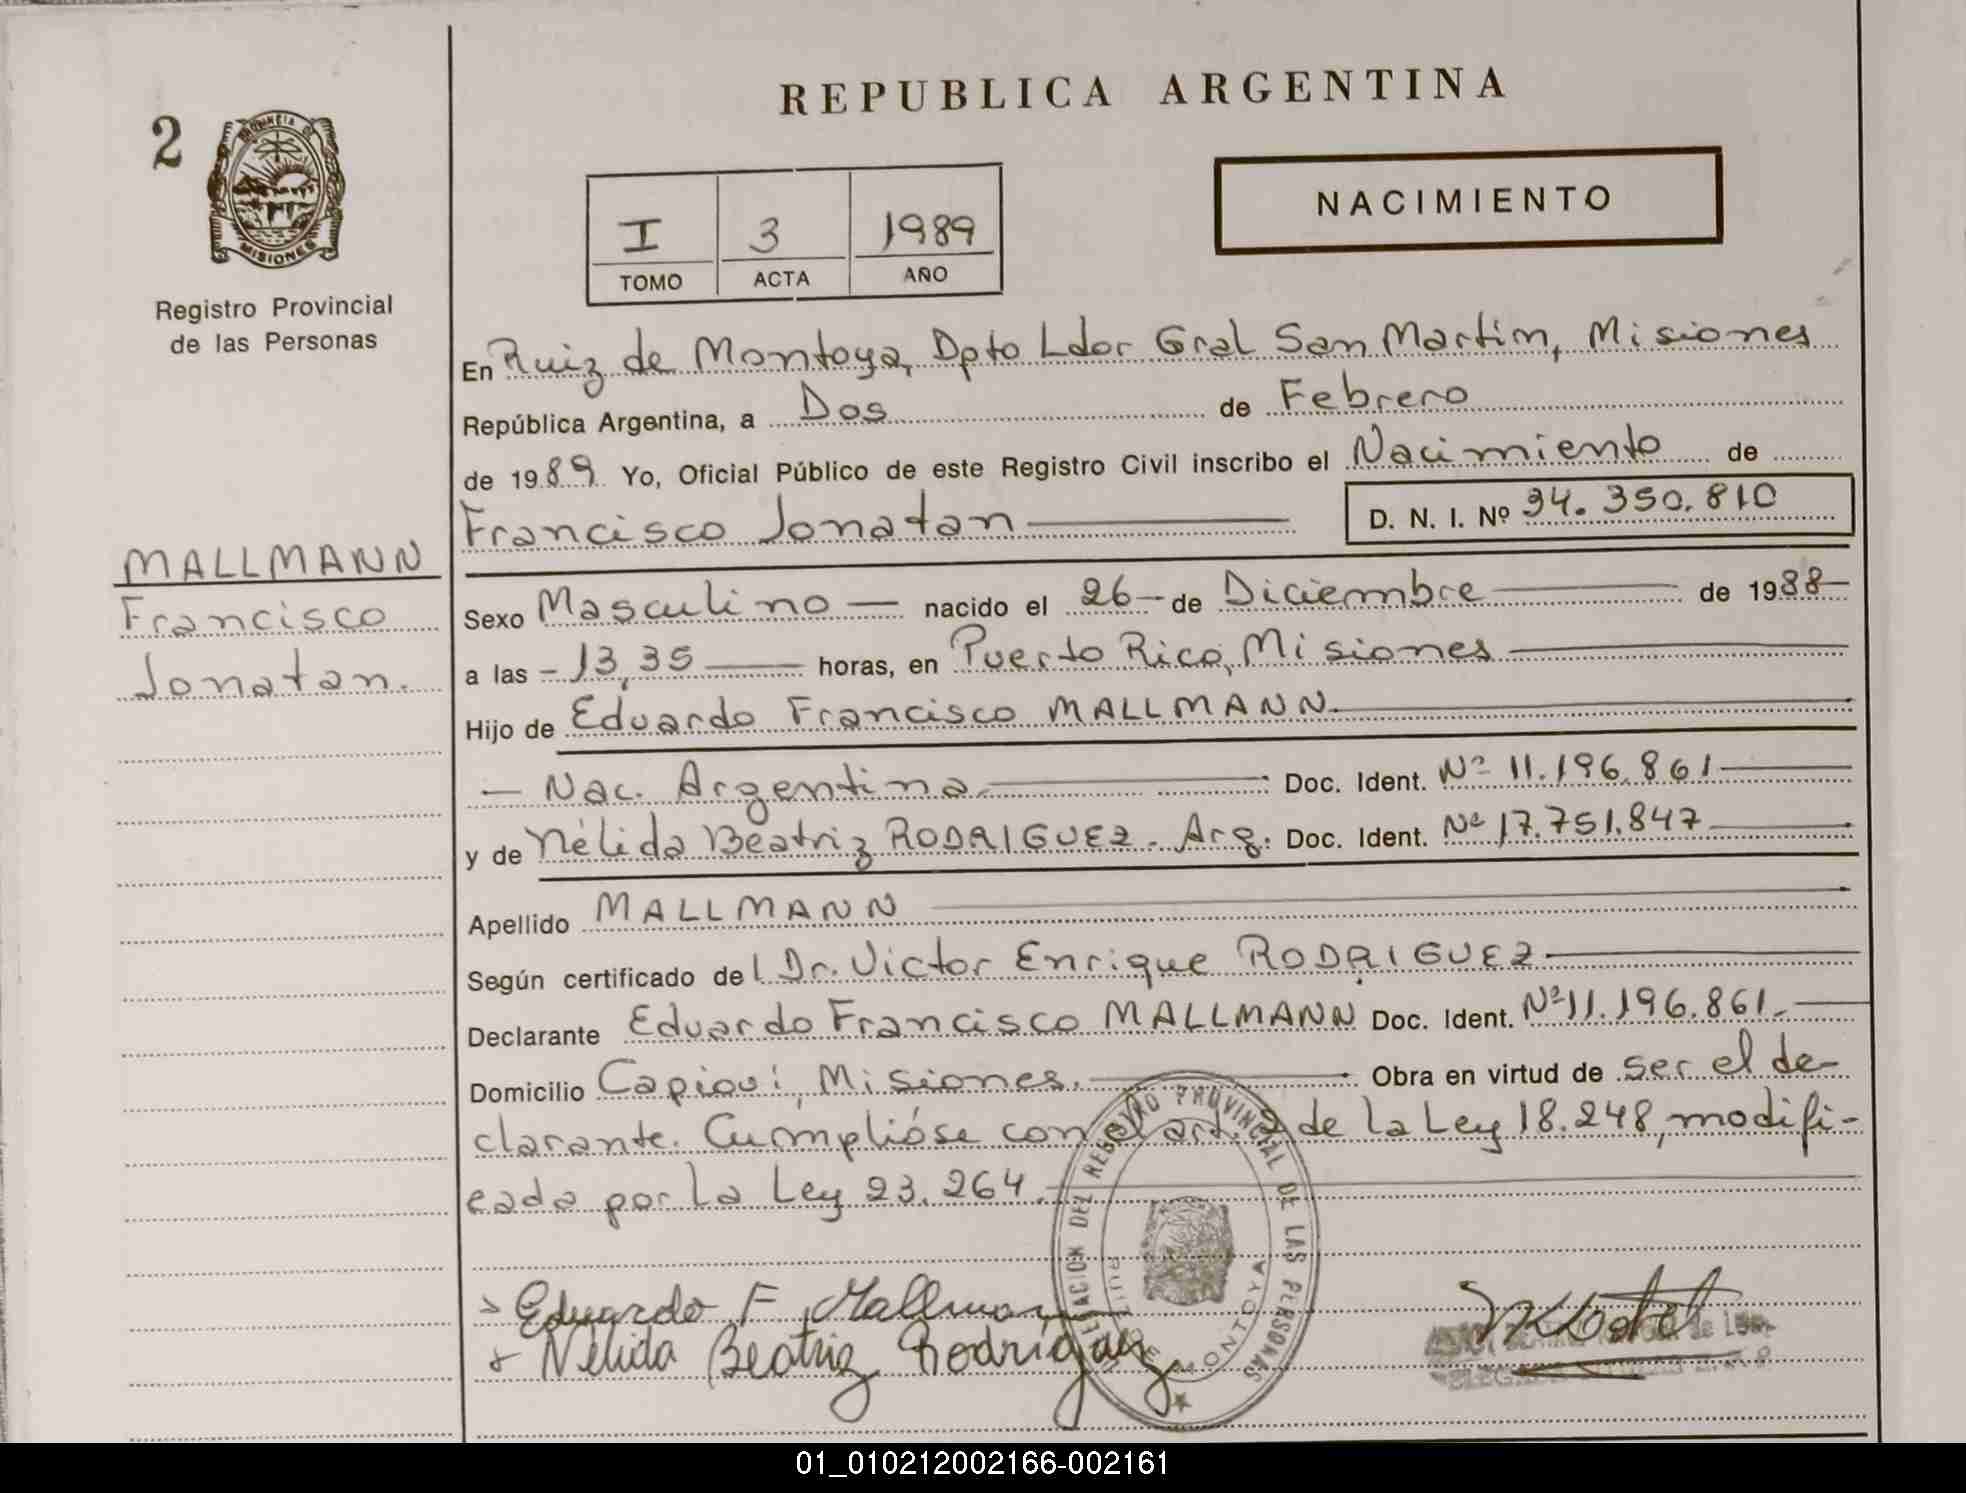 REPUBLICA ARGENTINA
2
PROVINCIA DE
MISIONES
Registro Provincial
de las Personas
I
3
1989
TOMO
ACTA
AÑO
NACIMIENTO
En Ruiz de Montoya, Dpto Ldor Gral San Martín, Misiones
República Argentina, a Dos de Febrero
de 1989 Yo, Oficial Público de este Registro Civil inscribo el Nacimiento de
Francisco Jonatan
D. N. I. Nº 34.350.810
MALLMANN
Francisco
Jonatan.
Sexo Masculino — nacido el 26 - de Diciembre — de 1988 -
a las - 13,35 — horas, en Puerto Rico, Misiones —
Hijo de Eduardo Francisco MALLMANN.
— Nac. Argentina. — Doc. Ident. Nº 11.196.861 —
y de Nélida Beatriz RODRIGUEZ. Arg. Doc. Ident. Nº 17.751.847 —
Apellido MALLMANN —
Según certificado del Dr. Victor Enrique RODRIGUEZ —
Declarante Eduardo Francisco MALLMANN Doc. Ident. Nº 11.196.861. —
Domicilio Capioví, Misiones. — Obra en virtud de ser el de-
clarante. Cumplióse con el art. 2 de la Ley 18.248, modifi-
cada por la Ley 23.264. —
DELEGACION DEL REGISTRO PROVINCIAL DE LAS PERSONAS
RUIZ DE MONTOYA
Eduardo F. Mallmann
Nélida Beatriz Rodríguez
01_010212002166-002161